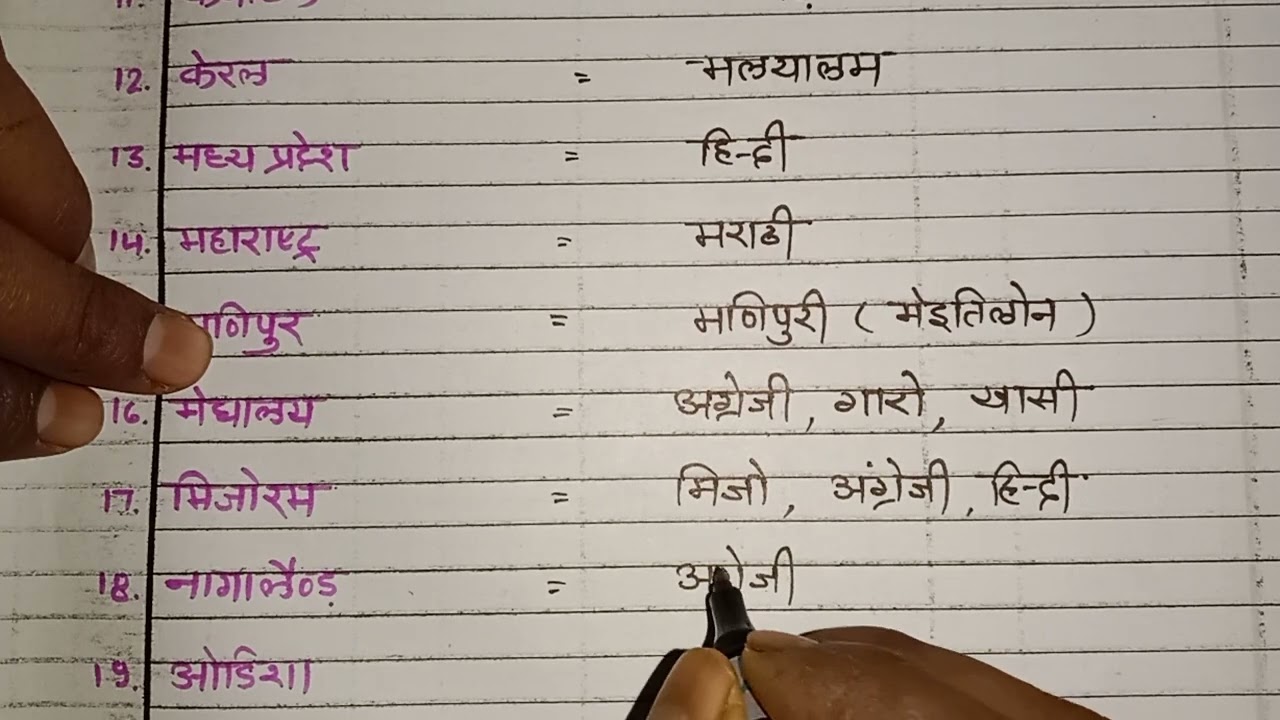 12. केरल = मलयालम
13. मध्य प्रदेश = हिन्दी
14. महाराष्ट्र = मराठी
मणिपुर = मणिपुरी ( मेइतिलोन )
16. मेघालय = अंग्रेजी, गारो, खासी
17. मिजोरम = मिजो, अंग्रेजी, हिन्दी
18. नागालैण्ड = अंग्रेजी
19. ओडिशा